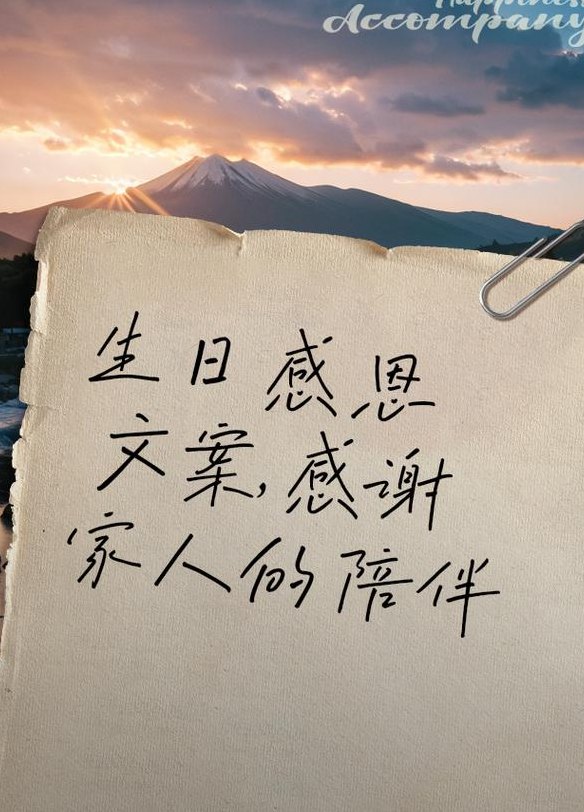 Happiness
Accompany
生日感恩
文案,感谢
家人的陪伴